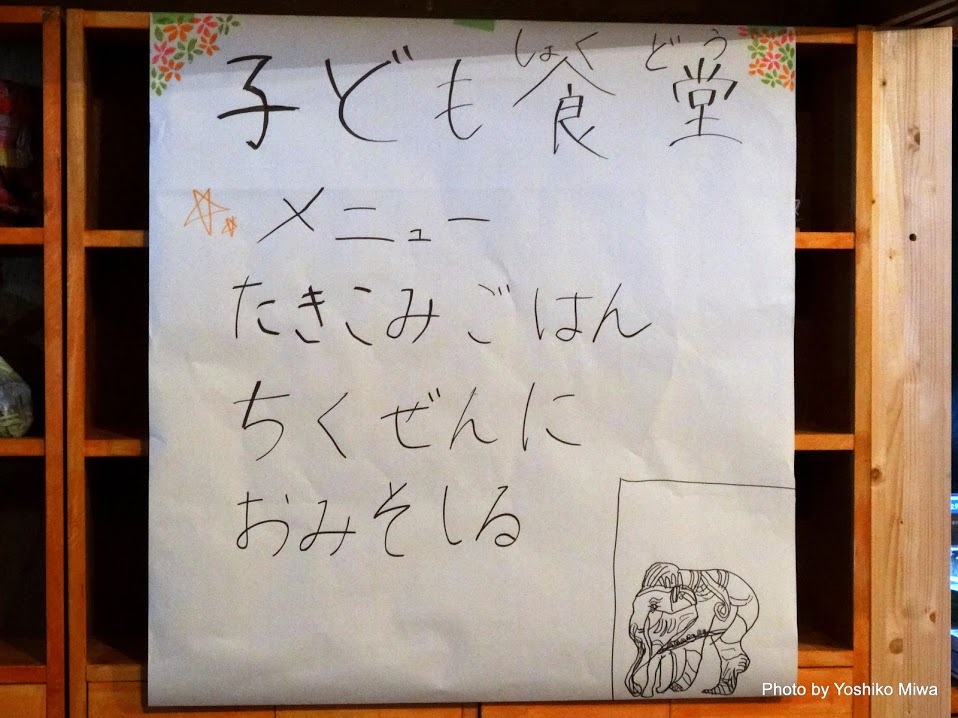 しょくどう
子ども食堂
メニュー
たきこみごはん
ちくぜんに
おみそしる
Photo by Yoshiko Miwa